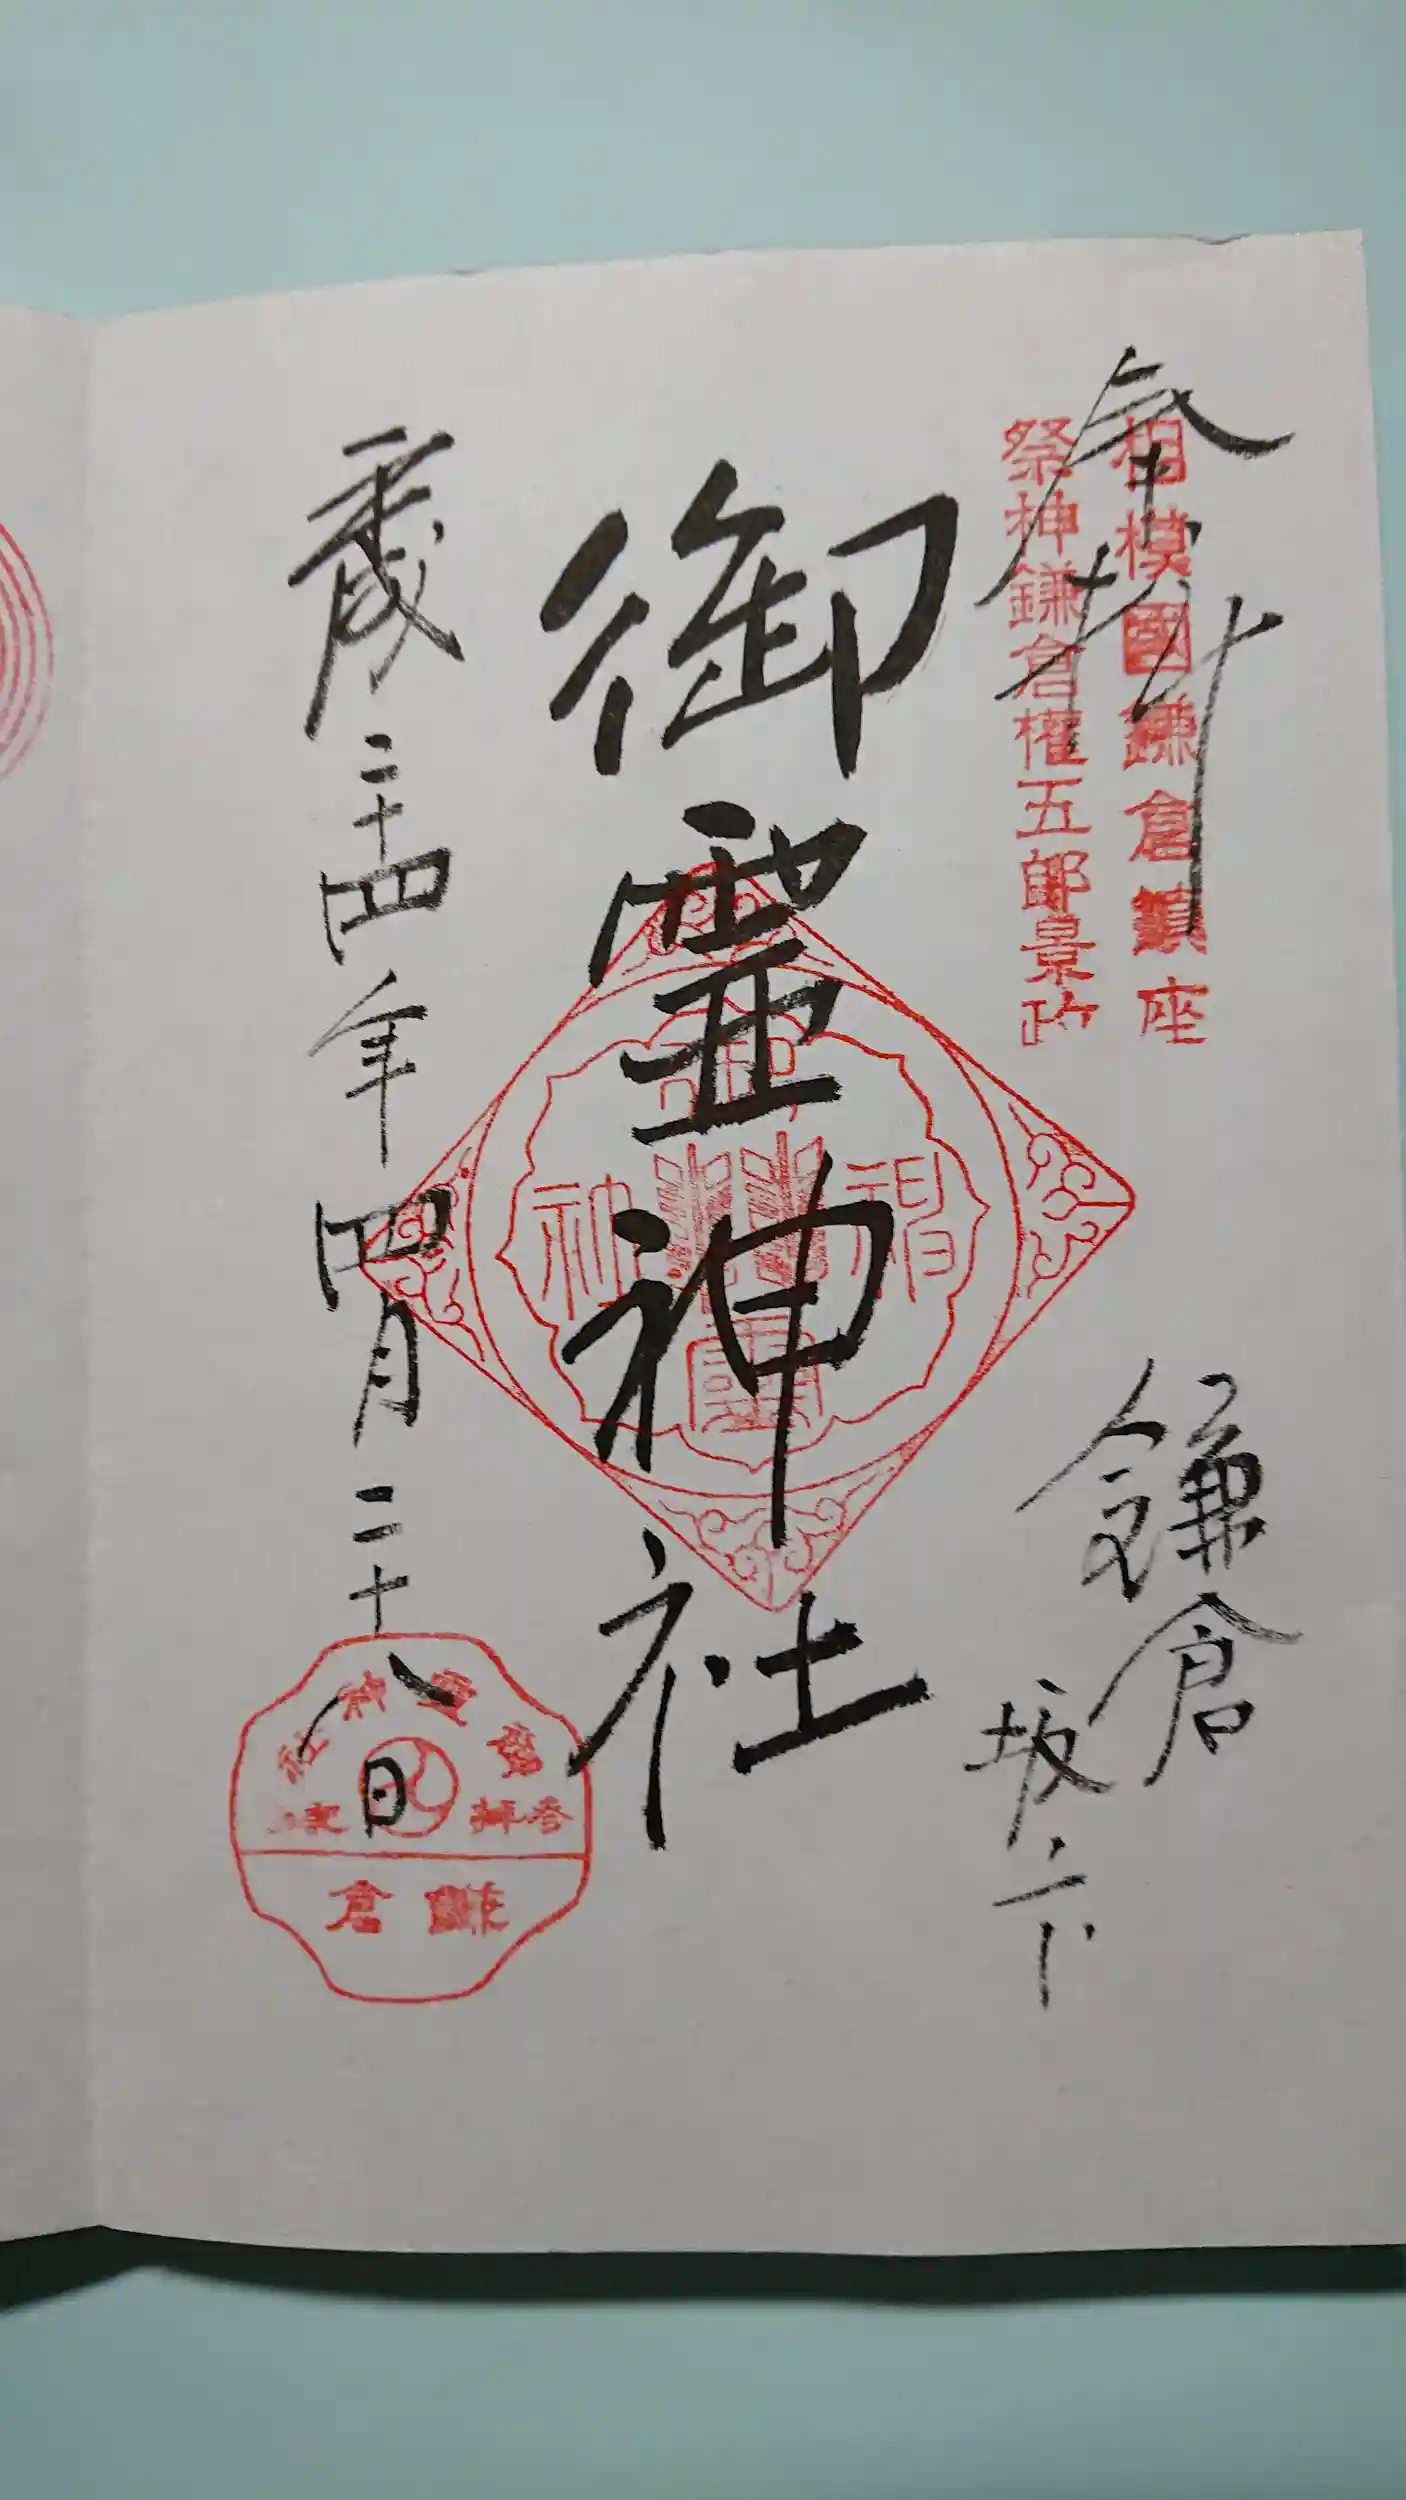 奉拝
相模國鎌倉鎮座
祭神鎌倉權五郎景政
鎌倉
坂ノ下
御霊神社
平成二十四年四月二十八日
御霊神社
参拝記念
鎌倉